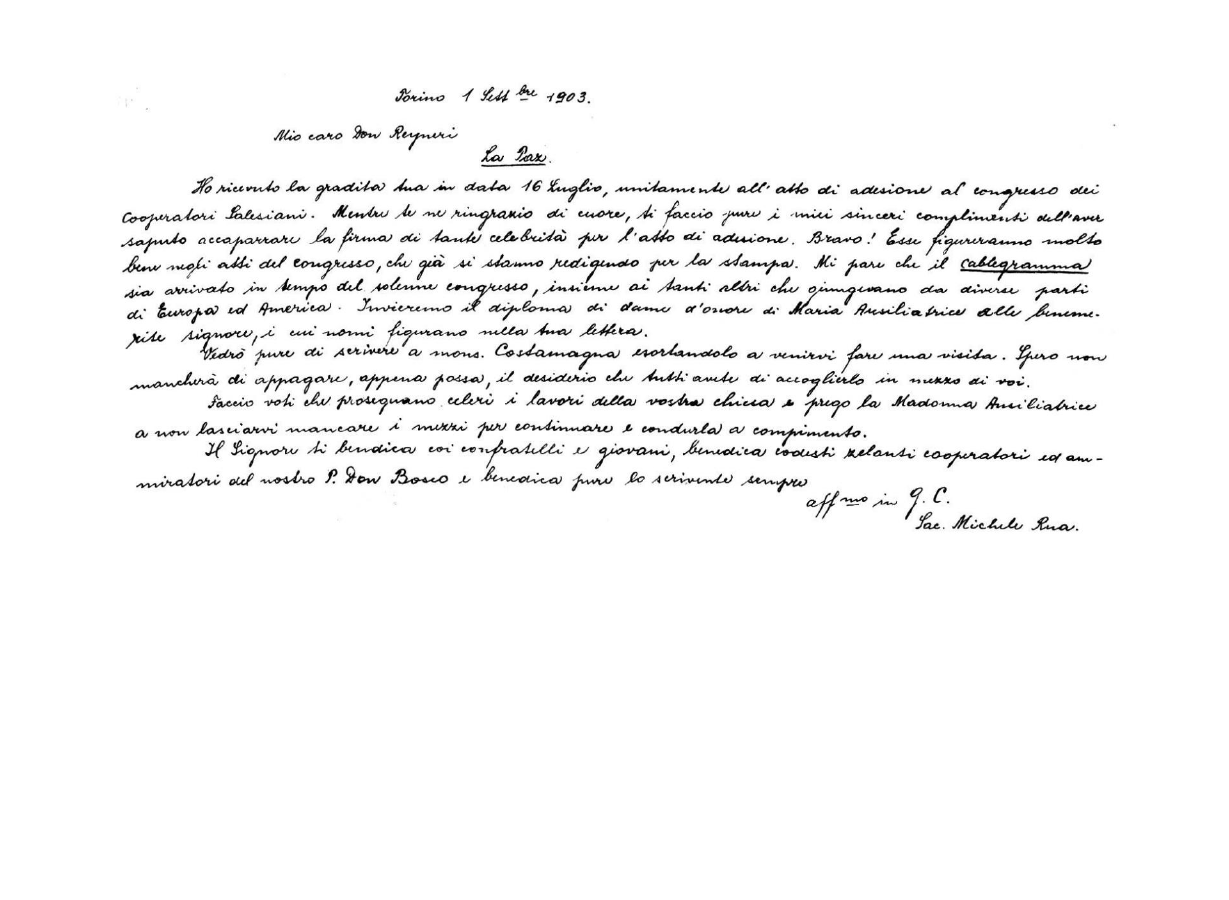 Torino 1 Sett bre 1903.
Mio caro Don Reyneri
La Paz.
Ho ricevuto la gradita tua in data 16 Luglio, unitamente all'atto di adesione al congresso dei
Cooperatori Salesiani. Mentre te ne ringrazio di cuore, ti faccio pure i miei sinceri complimenti dell'aver
saputo accaparrare la firma di tante celebrità per l'atto di adesione. Bravo! Esse figureranno molto
bene negli atti del congresso, che già si stanno redigendo per la stampa. Mi pare che il cablegramma
sia arrivato in tempo del solenne congresso, insieme ai tanti altri che giungevano da diverse parti
di Europa ed America. Invieremo il diploma di dame d'onore di Maria Ausiliatrice alle beneme-
rite signore, i cui nomi figurano nella tua lettera.
Vedrò pure di scrivere a mons. Costamagna esortandolo a venirvi fare una visita. Spero non
mancherà di appagare, appena possa, il desiderio che tutti avete di accoglierlo in mezzo di voi.
Faccio voti che proseguano celeri i lavori della vostra chiesa e prego la Madonna Ausiliatrice
a non lasciarvi mancare i mezzi per continuare e condurla a compimento.
Il Signore ti benedica coi confratelli e giovani, benedica codesti zelanti cooperatori ed am-
miratori del nostro P. Don Bosco e benedica pure lo scrivente sempre
aff mo in G. C.
Sac. Michele Rua.